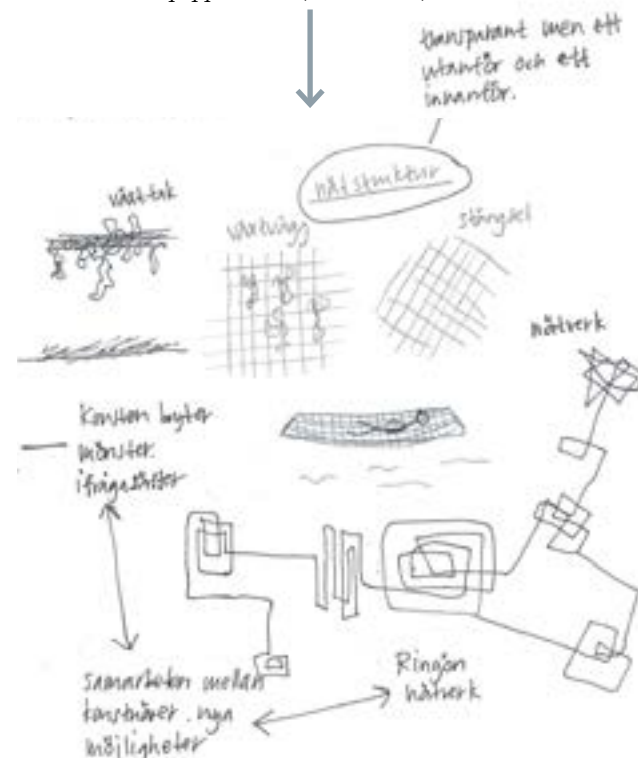 transparant men ett
utanför och ett
innanför.
nätstruktur
växttak
växtvägg
stängsel
nätverk
Konsten byter
mönster.
ifrågasätter
samarbeten mellan
konstnärer. nya
möjligheter
Ringön
nätverk